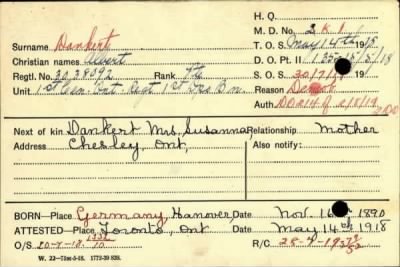 H. Q.
M. D. No. 2 K. 1.
Surname Dankert
T. O. S. May 14th 1918
Christian names Albert
D. O. Pt. II 1 15/5/18
Regtl. No. 3038092 Rank Pte
S. O. S. 30/7/19
Unit 1st Cen. Ont. Regt 1st Dep Bn.
Reason Demob
Auth. DO214 of 2/8/19 2DD
Next of kin Dankert Mrs. Susanna Relationship Mother
Address Chesley, Ont, Also notify:
BORN—Place Germany, Hanover, Date Nov. 16th 1890
ATTESTED—Place Toronto, Ont Date May 14th 1918
O/S 20-7-18. R/C 28-7-19
W. 22—